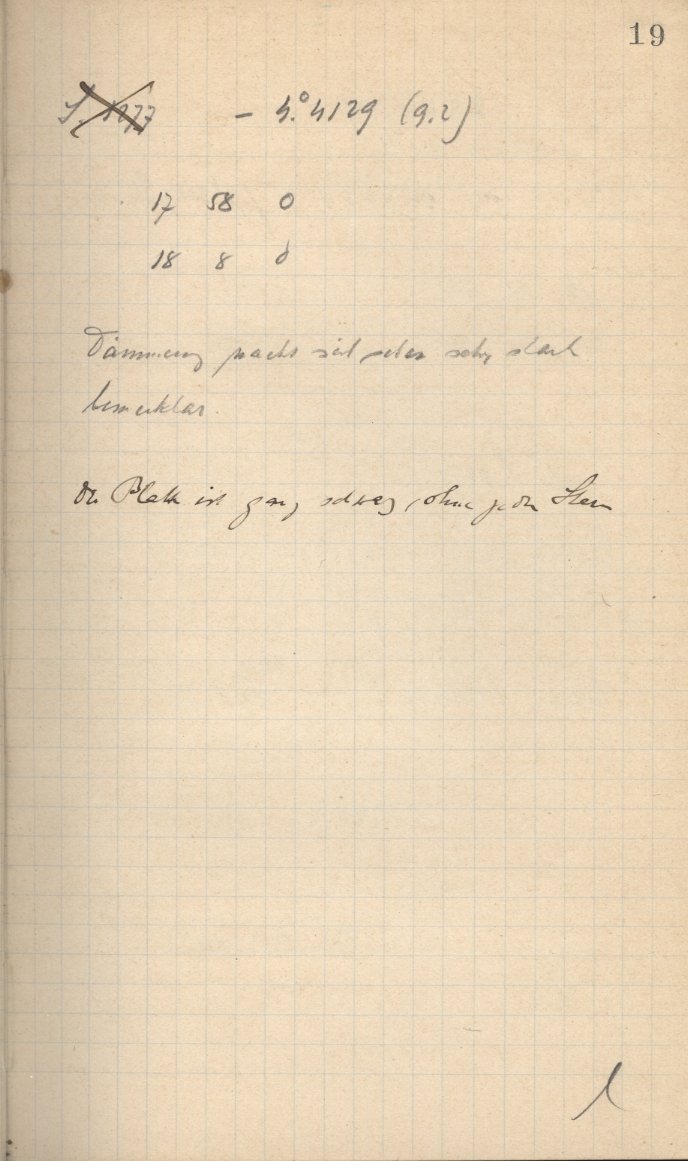 19
S. 1277 – 4.°4129 (9.2)
17 58 0
18 8 0
Dämmerung macht sich schon sehr stark
bemerkbar.
Die Platte ist ganz schwarz, ohne jeden Stern